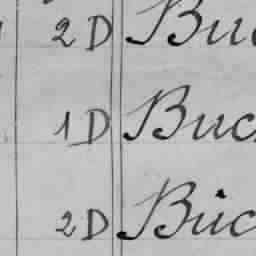 2 D Buc
1 D Buc
2 D Buc